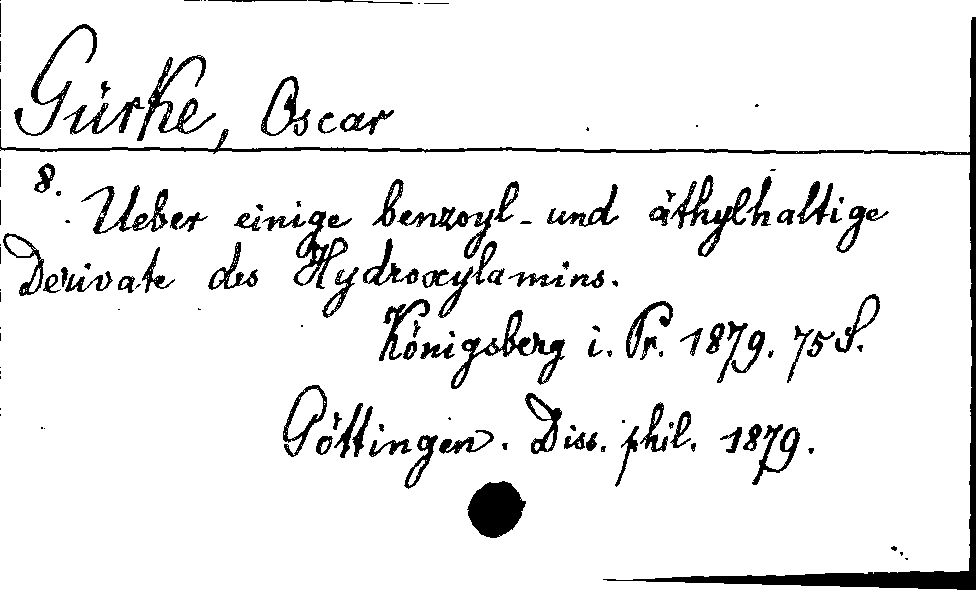 Gürke, Oscar
8.
Ueber einige benzoyl- und äthylhaltige
Derivate des Hydroxylamins.
Königsberg i. Pr. 1879. 75 S.
Göttingen. Diss. phil. 1879.